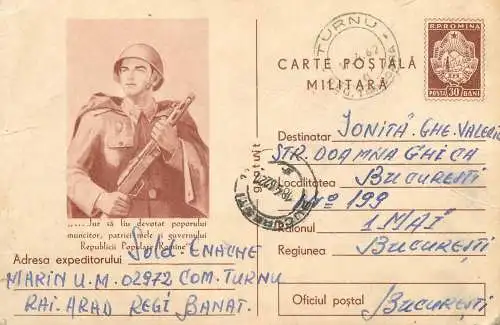 R.P.ROMINA
POSTA 30 BANI
TURNU
CARTE POȘTALĂ
MILITARĂ
„....Jur să fiu devotat poporului
muncitor, patriei mele și guvernului
Republicii Populare Romîne"
Adresa expeditorului Sold. ENACHE
MARIN U.M. 02972 COM. TURNU
RAI. ARAD REGI BANAT.
Destinatar IONIȚĂ GHE. VALERIU
STR. DOAMNA GHICA
Localitatea BUCUREȘTI
Nº 199
Raionul 1 MAI
Regiunea BUCUREȘTI
Oficiul poștal BUCUREȘTI
BUCUREȘTI